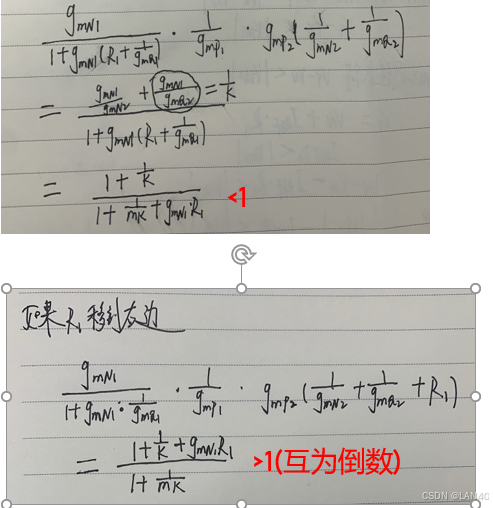 g_{mN1}/(1+g_{mN1}(R_1+1/g_{mQ1})) · 1/g_{mP1} · g_{mP2}(1/g_{mN2}+1/g_{mQ2})
= (g_{mN1}/g_{mN2} + (g_{mN1}/g_{mQ2}) = 1/K)/(1+g_{mN1}(R_1+1/g_{mQ1}))
= (1+1/K)/(1+1/mK+g_{mN1}·R_1) <1
如果 R_1 移到右边
g_{mN1}/(1+g_{mN1}·1/g_{mQ1}) · 1/g_{mP1} · g_{mP2}(1/g_{mN2}+1/g_{mQ2}+R_1)
= (1+1/K+g_{mN1}R_1)/(1+1/mK) >1(互为倒数)
CSDN @LAN40